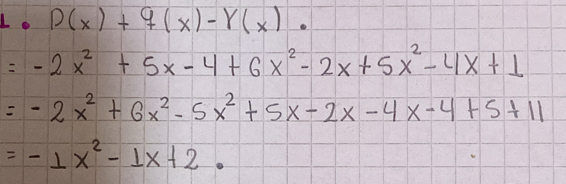 1. P(x) + q(x) - r(x).
= -2x² + 5x - 4 + 6x² - 2x + 5x² - 4x + 1
= -2x² + 6x² - 5x² + 5x - 2x - 4x - 4 + 5 + 11
= -1x² - 1x + 2.